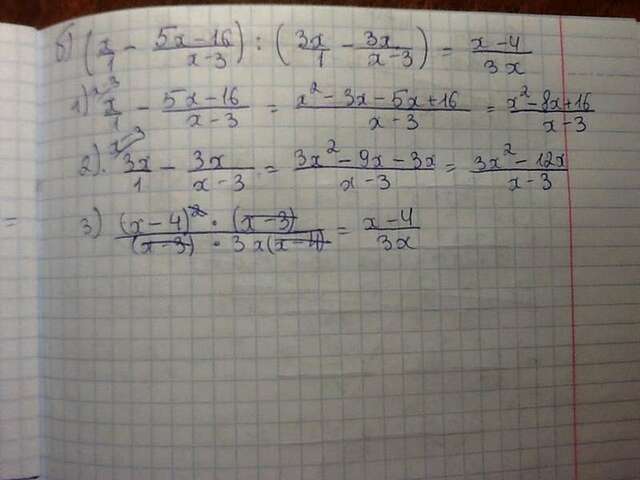 б) (x/1 - (5x-16)/(x-3)) : (3x/1 - 3x/(x-3)) = (x-4)/(3x)
1) x/1 ^(x-3) - (5x-16)/(x-3) = (x²-3x-5x+16)/(x-3) = (x²-8x+16)/(x-3)
2). 3x/1 ^(x-3) - 3x/(x-3) = (3x²-9x-3x)/(x-3) = (3x²-12x)/(x-3)
3) ((x-4)² · (x-3))/((x-3) · 3x(x-4)) = (x-4)/(3x)
=